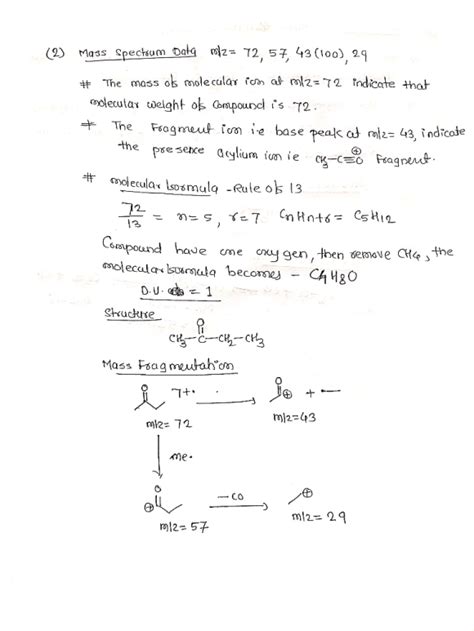 (2) Mass Spectrum Data m/z = 72, 57, 43(100), 29
# The mass of molecular ion at m/z = 72 indicate that
molecular weight of compound is 72.
# The Fragment ion i.e base peak at m/z = 43, indicate
the presence Acylium ion ie CH3-C≡O⊕ Fragment.
# molecular formula - Rule of 13
72/13 = n = 5, r = 7 CnHn+r = C5H12
Compound have one oxygen, then remove CH4, the
molecular formula becomes - C4H8O
D.U. = 1
Structure
O
CH3-C-CH2-CH3
Mass Fragmentation
O ⌉+• → O ⊕ + —
m/z = 72 m/z = 43
me•
O ⊕ -CO → ⊕
m/z = 57 m/z = 29